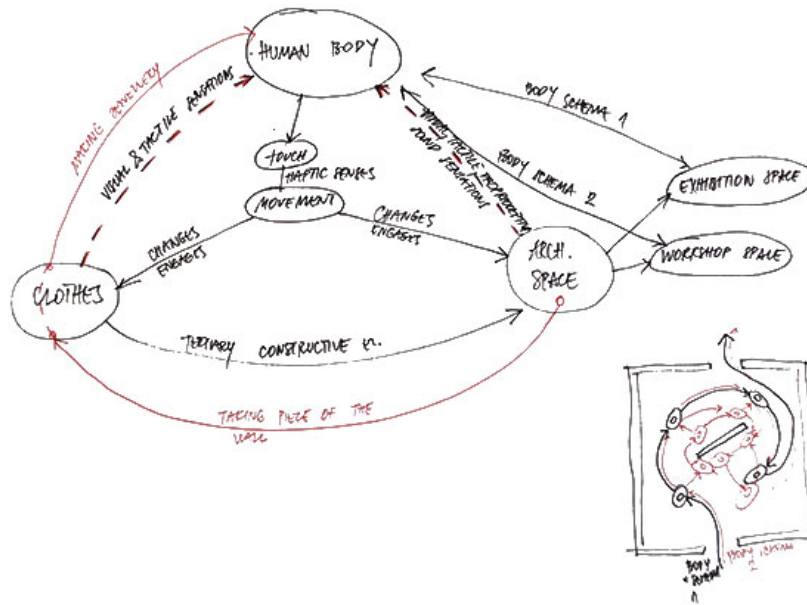 HUMAN BODY
MAKING JEWELLERY
VISUAL & TACTILE SENSATIONS
TOUCH
HAPTIC SENSES
MOVEMENT
CHANGES
ENGAGES
CHANGES
ENGAGES
VISUAL TACTILE PROPRIOCEPTIVE
SOUND SENSATIONS
BODY SCHEMA 1
BODY SCHEMA 2
EXHIBITION SPACE
WORKSHOP SPACE
ARCH.
SPACE
CLOTHES
TERTIARY CONSTRUCTIVE
TAKING PIECE OF THE
WALL
BODY
SCHEMA
1
BODY SCHEMA
2